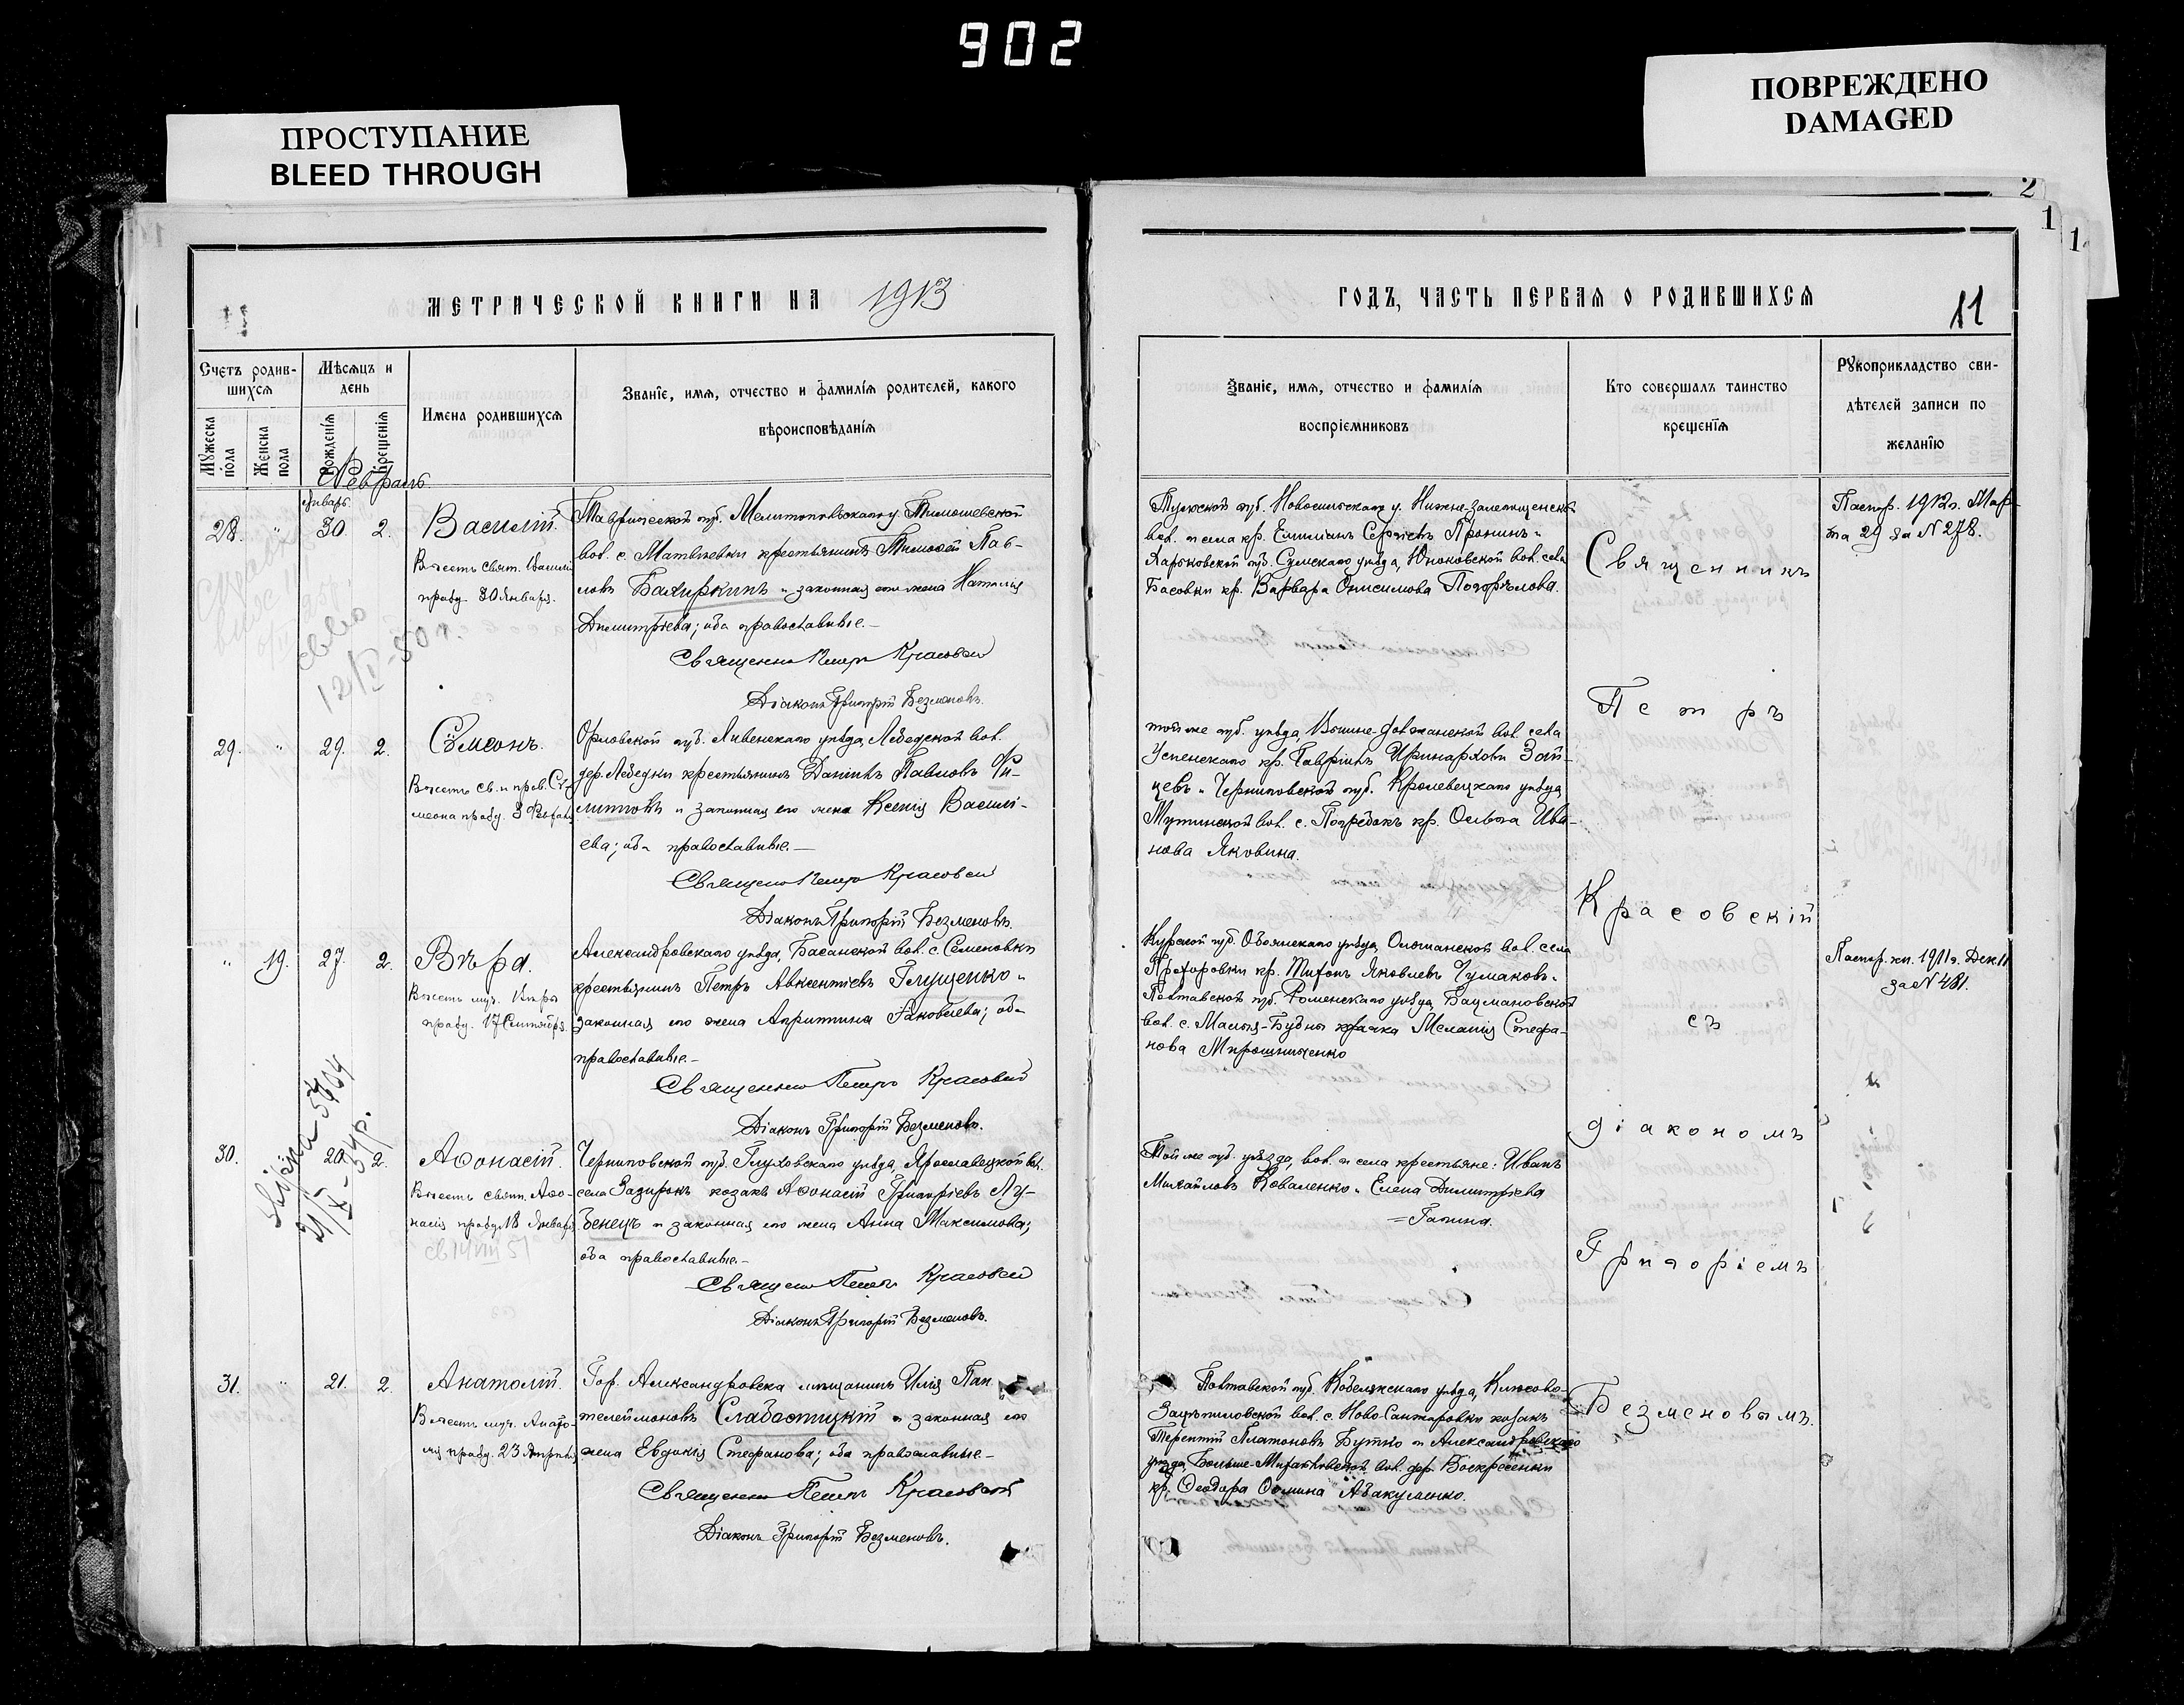 902
ПРОСТУПАНИЕ
BLEED THROUGH
ПОВРЕЖДЕНО
DAMAGED
2
1
1
МЕТРИЧЕСКОЙ КНИГИ НА 1913
ГОДЪ, ЧАСТЬ ПЕРВАЯ О РОДИВШИХСЯ
11
Счетъ родив-
шихся
Мѣсяцъ и
день
Мужеска
пола
Женска
пола
Рожденія
Крещенія
Имена родившихся
Званіе, имя, отчество и фамилія родителей, какого
вѣроисповѣданія
Званіе, имя, отчество и фамилія
воспріемниковъ
Кто совершалъ таинство
крещенія
Рукоприкладство сви-
дѣтелей записи по
желанію
Февраль
Январь
28. " 30. 2.
Василій.
Въ честь свят. Василія
празд. 30 Января.
Таврической губ. Мелитопольскаго у. Тимошевской
вол. с. Матвѣевки крестьянинъ Тимоѳей Пав-
ловъ Бахиркинъ и законная его жена Наталія
Димитріева; оба православные.-
Священникъ Петръ Красовскій
Діаконъ Григорій Безменовъ.
Тульской губ. Новосильскаго у. Нижне-Залегощенской
вол. и села кр. Емиліанъ Сергіевъ Пронинъ и
Харьковской губ. Сумскаго уѣзда, Юнаковской вол. села
Басовки кр. Варвара Онисимова Погорѣлова.
Паспор. 1912г. Мар-
та 29 за N 278.
12/V-50 г.
29. " 29. 2.
Сѵмеонъ.
Въ честь св. и прав. Сѵ-
меона празд. 3 Февраля
Орловской губ. Ливенскаго уѣзда, Лебедской вол.
дер. Лебедки крестьянинъ Даніилъ Павловъ Фи-
липповъ и законная его жена Ксенія Василі-
ева; оба православные.-
Священникъ Петръ Красовскій
Діаконъ Григорій Безменовъ.
той же губ. уѣзда,
Успенскаго кр. Гавріилъ Иринарховъ Зай-
цевъ и Черниговской губ. Кролевецкаго уѣзда
Мутинской вол. с. кр. Ольга Ива-
нова Яковина.
" 19. 27. 2.
Вѣра.
Въ честь муч. Вѣры
празд. 17 Сентября.
Александровскаго уѣзда, Басанской вол. с. Семеновки
крестьянинъ Петръ Авксентіевъ Глущенко и
законная его жена Агриппина Яковлева; оба
православные.-
Священникъ Петръ Красовскій
Діаконъ Григорій Безменовъ.
Курской губ. Обоянскаго уѣзда, Ольшанской вол. села
Прохоровки кр. Тихонъ Яковлевъ Чумаковъ и
Полтавской губ. Роменскаго уѣзда, Бацмановской
вол. с. Малыя-Будки казачка Меланія Стефа-
нова Мирошниченко
Паспор. кн. 1911г. Дек. 11
за N 481.
30. 20. 2.
Аѳонасій.
Въ честь свят. Аѳо-
насія празд. 18 Января
св 14 VIII 51
Черниговской губ. Глуховскаго уѣзда, Ярославецкой вол.
села Зазирокъ козакъ Аѳонасій Григоріевъ Лу-
бенецъ и законная его жена Анна Максимова;
оба православные.-
Священникъ Петръ Красовскій
Діаконъ Григорій Безменовъ.
Той же губ. уѣзда, вол. и села крестьяне: Иванъ
Михайловъ Коваленко и Елена Димитріева
=Гапина.
31. " 21. 2.
Анатолій.
Въ честь муч. Анато-
лія празд. 23 Апрѣля
Гор. Александровска мѣщанинъ Илія Пан
телеймоновъ Слабостицкій и законная его
жена Евдокія Стефанова; оба православные.-
Священникъ Петръ Красовскій
Діаконъ Григорій Безменовъ.
Полтавской губ. Кобелякскаго уѣзда,
вол. с. Ново-Санжаровки козакъ
Терентій Платоновъ Бутко и Александровскаго
уѣзда, Больше-Михайловской вол. дер. Воскресенки
кр. Ѳеодора Ѳомина Абакуменко.
Священникъ
Петръ
Красовскій
съ
діакономъ
Григоріемъ
Безменовымъ.